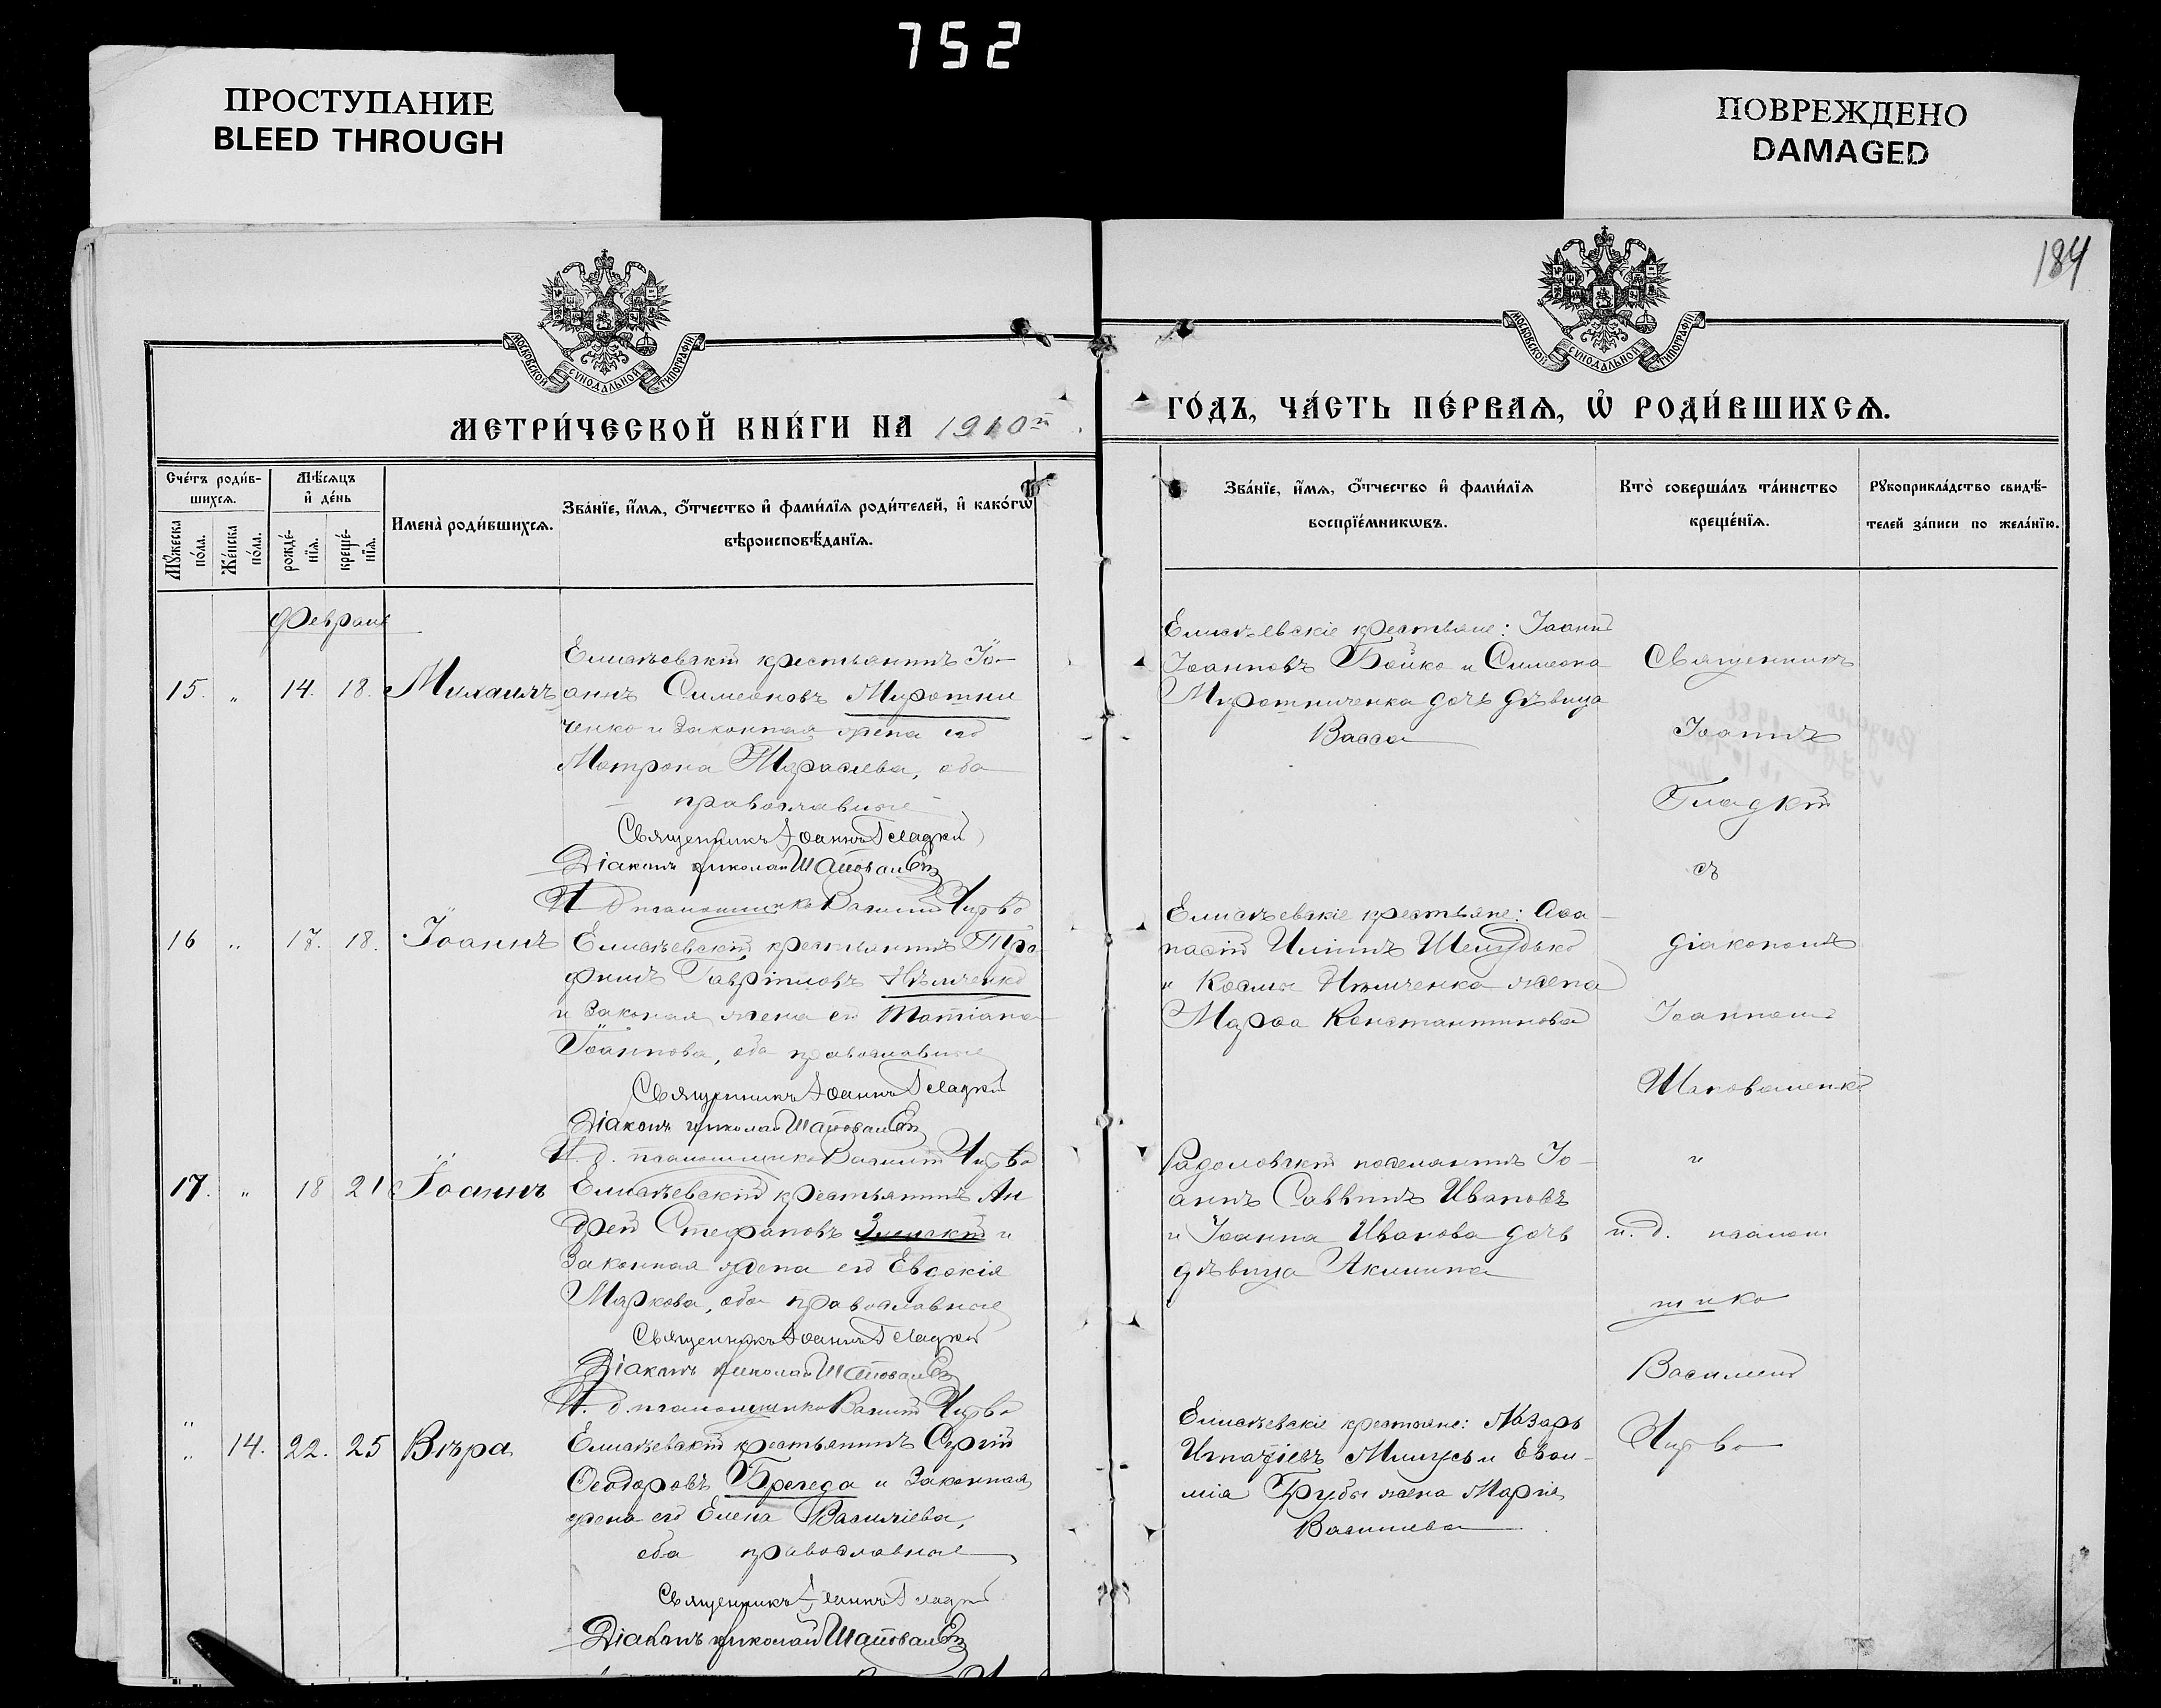 752
ПРОСТУПАНИЕ
BLEED THROUGH
ПОВРЕЖДЕНО
DAMAGED
184
МОСКОВСКОЙ СѴНОДАЛЬНОЙ ТИПОГРАФІИ
МОСКОВСКОЙ СѴНОДАЛЬНОЙ ТИПОГРАФІИ
МЕТРИ́ЧЕСКОЙ КНИ́ГИ НА 1910й
ГО́ДЪ, ЧА́СТЬ ПЕ́РВАЯ, Ѡ҆ РОДИ́ВШИХСѦ.
Сче́тъ роди́в-
шихсѧ.
Мꙋ́жеска
по́ла.
Же́нска
по́ла.
Мѣ́сѧцъ
и҆ де́нь
рожде́-
нїѧ.
креще́-
нїѧ.
Имена̀ роди́вшихсѧ.
Зва́нїе, и҆́мѧ, ѻ҆́тчество и҆ фами́лїѧ роди́телей, и҆ како́гѡ
вѣроисповѣ́данїѧ.
Зва́нїе, и҆́мѧ, ѻ҆́тчество и҆ фами́лїѧ
воспрїе́мникѡвъ.
Кто̀ соверша́лъ та́инство
креще́нїѧ.
Рꙋкоприкла́дство свидѣ́-
телей за́писи по жела́нїю.
Февраль
15. " 14. 18. Михаилъ
Елисѣевскій крестьянинъ Іо-
аннъ Симеоновъ Миротни
ченко и законная жена его
Матрона Тарасіева, оба
православные
Священникъ Іоаннъ Гладкій
Діаконъ Николай Шаповаленко
И. д. псаломщика Василій Чирва
Елисѣевскіе крестьяне: Іоаннъ
Іоанновъ Бойко и Симеона
Миротниченка дочь дѣвица
Васса
Священникъ
Іоаннъ
Гладкій
съ
16 " 17. 18. Іоаннъ
Елисѣевскій крестьянинъ Тро
фимъ Гавріиловъ Нѣмченко
и законая жена его Татіана
Іоаннова, оба православные
Священникъ Іоаннъ Гладкій
Діаконъ Николай Шаповаленко
И. д. псаломщика Василій Чирва
Елисѣевскіе крестьяне: Аѳа-
насій Иліинъ Шелудько
и Космы Нѣмченка жена
Марѳа Константинова
діакономъ
Іоанномъ
Шаповаленко
17. " 18 21 Іоаннъ
Елисѣевскій крестьянинъ Ан
дрей Стефановъ и
законная жена его Евдокія
Маркова, оба православные
Священникъ Іоаннъ Гладкій
Діаконъ Николай Шаповаленко
И. д. псаломщика Василій Чирва
Радоловскій поселянинъ Іо-
аннъ Саввинъ Ивановъ
и Іоанна Иванова дочь
дѣвица Акилина
и
и. д. псалом
щика
Василій
Чирва
" 14. 22. 25 Вѣра
Елисѣевскій крестьянинъ Сергій
Ѳеодоровъ Брегеда и законная
жена его Елена Василіева,
оба православные
Священникъ Іоаннъ Гладкій
Діаконъ Николай Шаповаленко
Елисѣевскіе крестьяне: Лазарь
Игнатіевъ и Евѳи-
мія Грубы жена Марія
Василіева